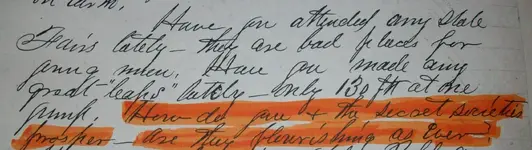 on farm.
Have you attended any State
Fairs lately – they are bad places for
young men. Have you made any
great "leaps" lately – only 130 ft at one
jump. How do you & the secret societies
prosper – are they flourishing as ever